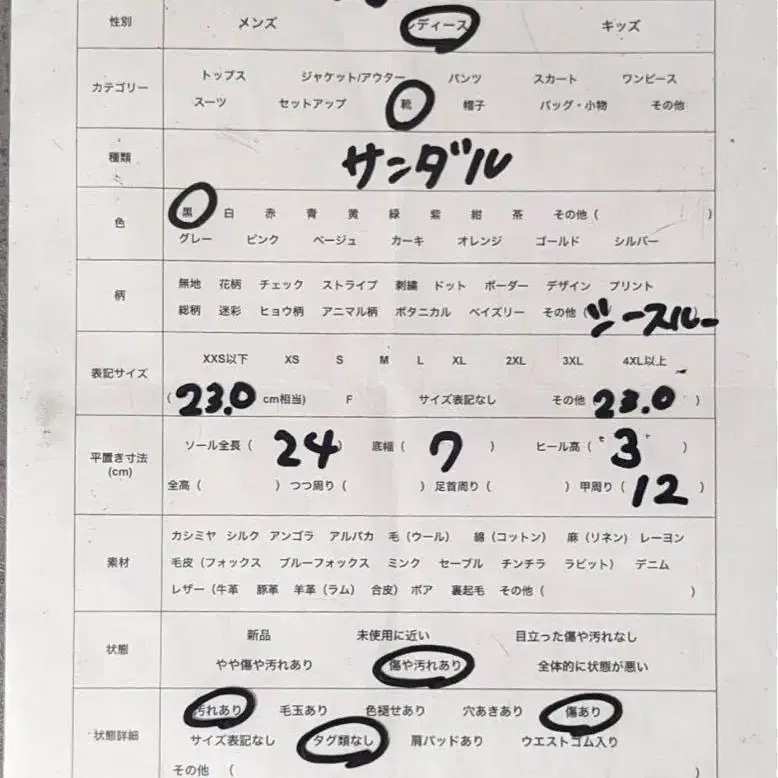 性別 メンズ レディース キッズ
カテゴリー
トップス ジャケット/アウター パンツ スカート ワンピース
スーツ セットアップ 靴 帽子 バッグ・小物 その他
種類 サンダル
色
黒 白 赤 青 黄 緑 紫 紺 茶 その他 ( )
グレー ピンク ベージュ カーキ オレンジ ゴールド シルバー
柄
無地 花柄 チェック ストライプ 刺繍 ドット ボーダー デザイン プリント
総柄 迷彩 ヒョウ柄 アニマル柄 ボタニカル ペイズリー その他 ( シースルー
表記サイズ
XXS以下 XS S M L XL 2XL 3XL 4XL以上
( 23.0 cm相当) F サイズ表記なし その他 ( 23.0 )
平置き寸法
(cm)
ソール全長 ( 24 ) 底幅 ( 7 ) ヒール高 ( 3 )
全高 ( ) つつ周り ( ) 足首周り ( ) 甲周り ( 12 )
素材
カシミヤ シルク アンゴラ アルパカ 毛 (ウール) 綿 (コットン) 麻 (リネン) レーヨン
毛皮 (フォックス ブルーフォックス ミンク セーブル チンチラ ラビット) デニム
レザー (牛革 豚革 羊革 (ラム) 合皮) ボア 裏起毛 その他 ( )
状態
新品 未使用に近い 目立った傷や汚れなし
やや傷や汚れあり 傷や汚れあり 全体的に状態が悪い
状態詳細
汚れあり 毛玉あり 色褪せあり 穴あきあり 傷あり
サイズ表記なし タグ類なし 肩パッドあり ウエストゴム入り
その他 ( )